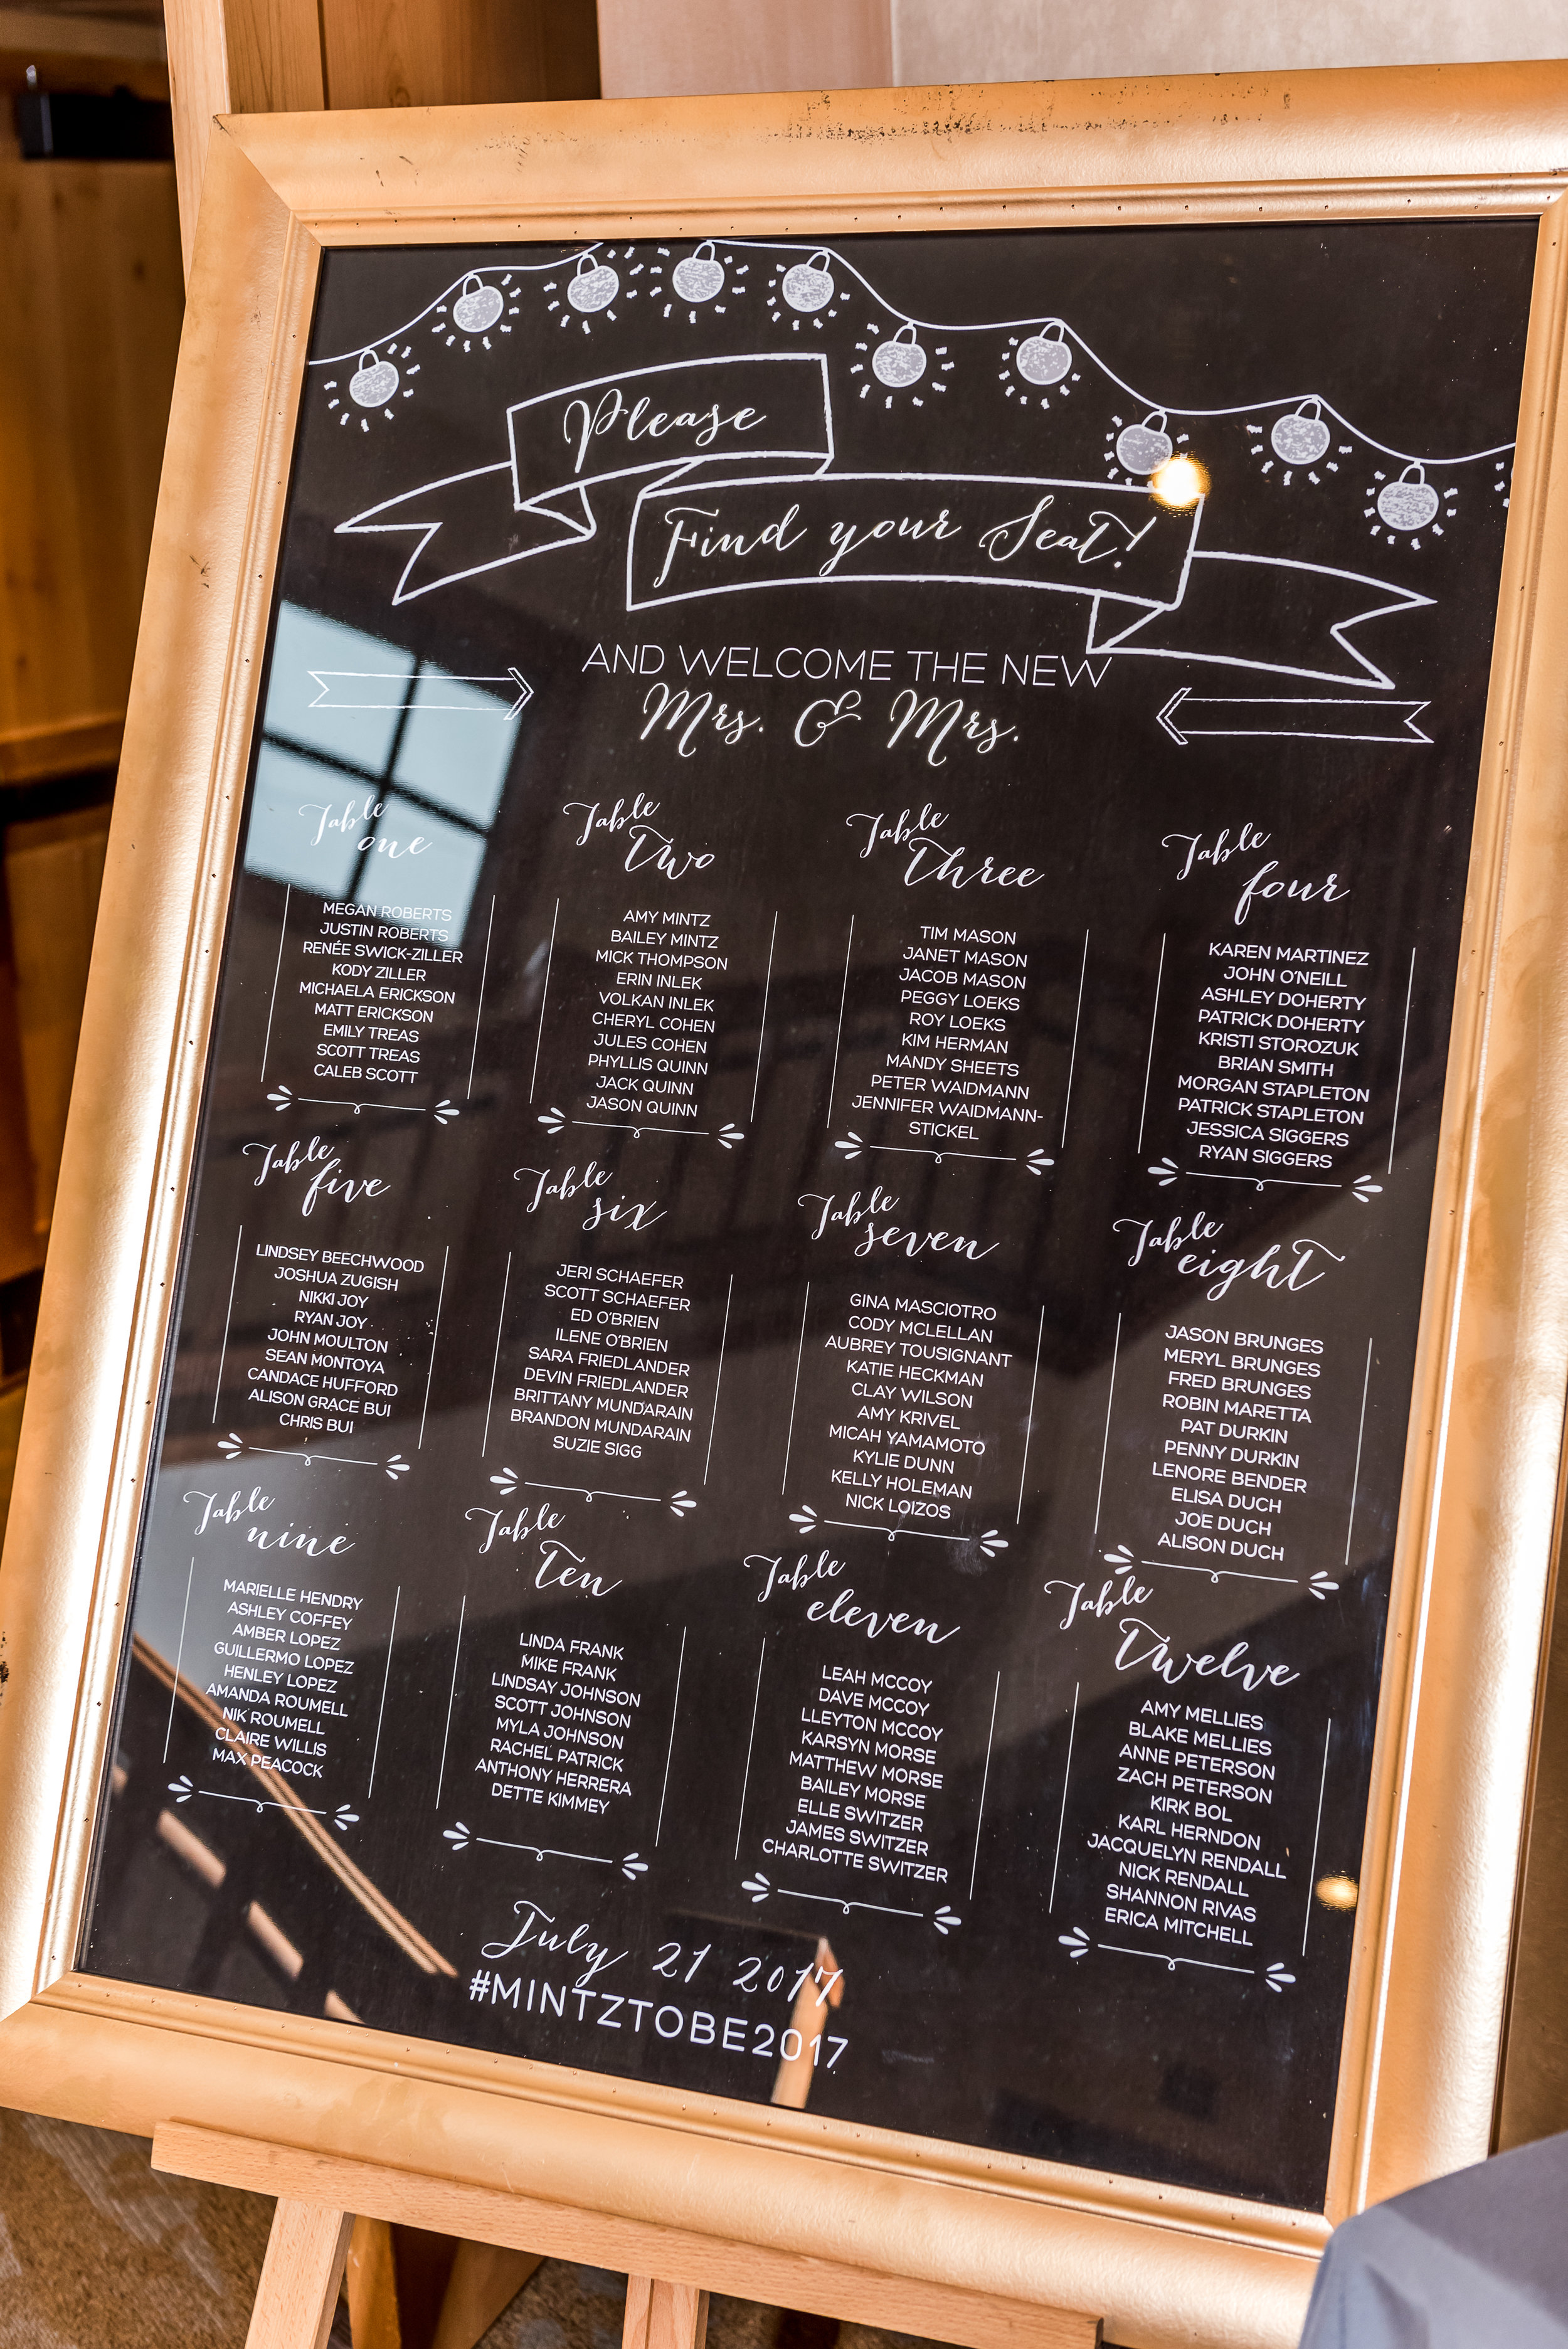 Please
Find your Seat!
AND WELCOME THE NEW
Mrs. & Mrs.
Table
one
MEGAN ROBERTS
JUSTIN ROBERTS
RENÉE SWICK-ZILLER
KODY ZILLER
MICHAELA ERICKSON
MATT ERICKSON
EMILY TREAS
SCOTT TREAS
CALEB SCOTT
Table
two
AMY MINTZ
BAILEY MINTZ
MICK THOMPSON
ERIN INLEK
VOLKAN INLEK
CHERYL COHEN
JULES COHEN
PHYLLIS QUINN
JACK QUINN
JASON QUINN
Table
three
TIM MASON
JANET MASON
JACOB MASON
PEGGY LOEKS
ROY LOEKS
KIM HERMAN
MANDY SHEETS
PETER WAIDMANN
JENNIFER WAIDMANN-
STICKEL
Table
four
KAREN MARTINEZ
JOHN O'NEILL
ASHLEY DOHERTY
PATRICK DOHERTY
KRISTI STOROZUK
BRIAN SMITH
MORGAN STAPLETON
PATRICK STAPLETON
JESSICA SIGGERS
RYAN SIGGERS
Table
five
LINDSEY BEECHWOOD
JOSHUA ZUGISH
NIKKI JOY
RYAN JOY
JOHN MOULTON
SEAN MONTOYA
CANDACE HUFFORD
ALISON GRACE BUI
CHRIS BUI
Table
six
JERI SCHAEFER
SCOTT SCHAEFER
ED O'BRIEN
ILENE O'BRIEN
SARA FRIEDLANDER
DEVIN FRIEDLANDER
BRITTANY MUNDARAIN
BRANDON MUNDARAIN
SUZIE SIGG
Table
seven
GINA MASCIOTRO
CODY MCLELLAN
AUBREY TOUSIGNANT
KATIE HECKMAN
CLAY WILSON
AMY KRIVEL
MICAH YAMAMOTO
KYLIE DUNN
KELLY HOLEMAN
NICK LOIZOS
Table
eight
JASON BRUNGES
MERYL BRUNGES
FRED BRUNGES
ROBIN MARETTA
PAT DURKIN
PENNY DURKIN
LENORE BENDER
ELISA DUCH
JOE DUCH
ALISON DUCH
Table
nine
MARIELLE HENDRY
ASHLEY COFFEY
AMBER LOPEZ
GUILLERMO LOPEZ
HENLEY LOPEZ
AMANDA ROUMELL
NIK ROUMELL
CLAIRE WILLIS
MAX PEACOCK
Table
ten
LINDA FRANK
MIKE FRANK
LINDSAY JOHNSON
SCOTT JOHNSON
MYLA JOHNSON
RACHEL PATRICK
ANTHONY HERRERA
DETTE KIMMEY
Table
eleven
LEAH MCCOY
DAVE MCCOY
LLEYTON MCCOY
KARSYN MORSE
MATTHEW MORSE
BAILEY MORSE
ELLE SWITZER
JAMES SWITZER
CHARLOTTE SWITZER
Table
twelve
AMY MELLIES
BLAKE MELLIES
ANNE PETERSON
ZACH PETERSON
KIRK BOL
KARL HERNDON
JACQUELYN RENDALL
NICK RENDALL
SHANNON RIVAS
ERICA MITCHELL
July 21 2017
#MINTZTOBE2017